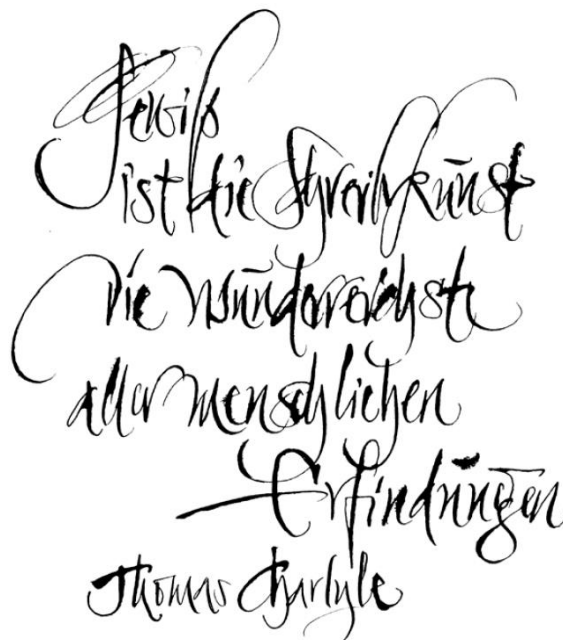 Gewiß
ist die Schreibkunst
die wunderreichste
aller menschlichen
Erfindungen
Thomas Charlyle